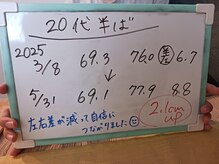 20代半ば
2025
3/8 69.3 76.0 6.7
↓
5/31 69.1 77.9 8.8
左右差が減って自信に
つながりました 2.1cm
up